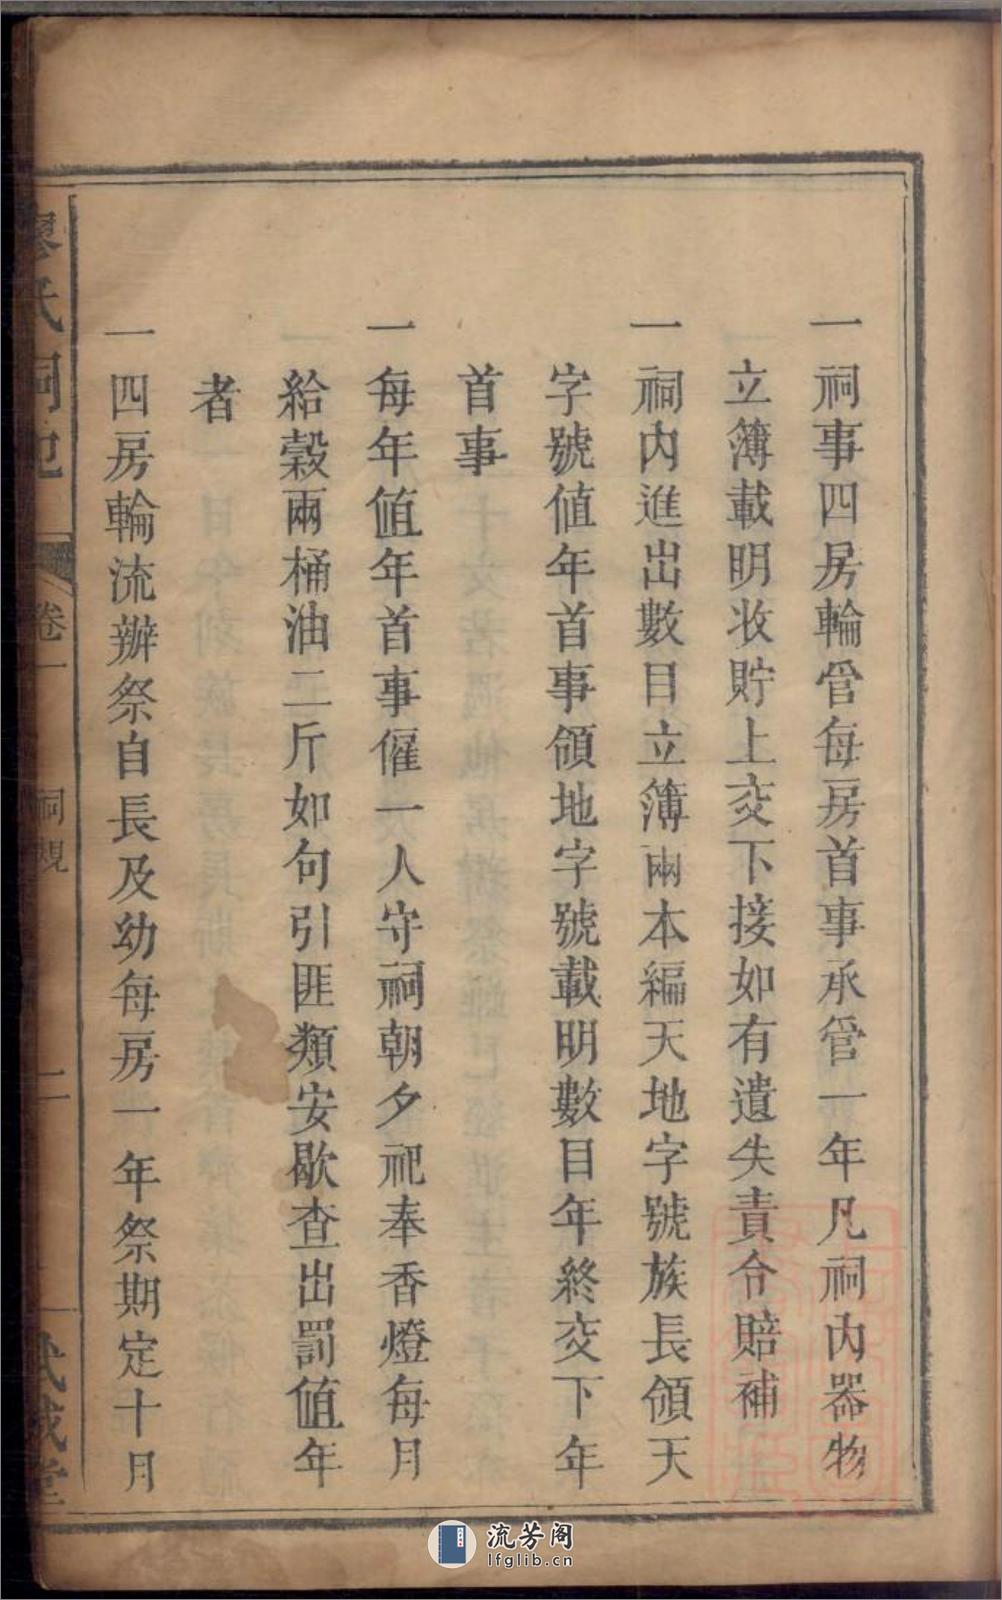 一祠事四房輪管每房首事承管一年凡祠內器物
立簿載明收貯上交下接如有遺失責令賠補
一祠內進出數目立簿兩本編天地字號族長領天
字號值年首事領地字號載明數目年終交下年
首事
一每年值年首事僱一人守祠朝夕祀奉香燈每月
給穀兩桶油二斤如句引匪類安歇查出罰值年
者
一四房輪流辦祭自長及幼每房一年祭期定十月
廖氏祠 卷一 祠規 二 武威堂
流芳阁
lfglib.cn